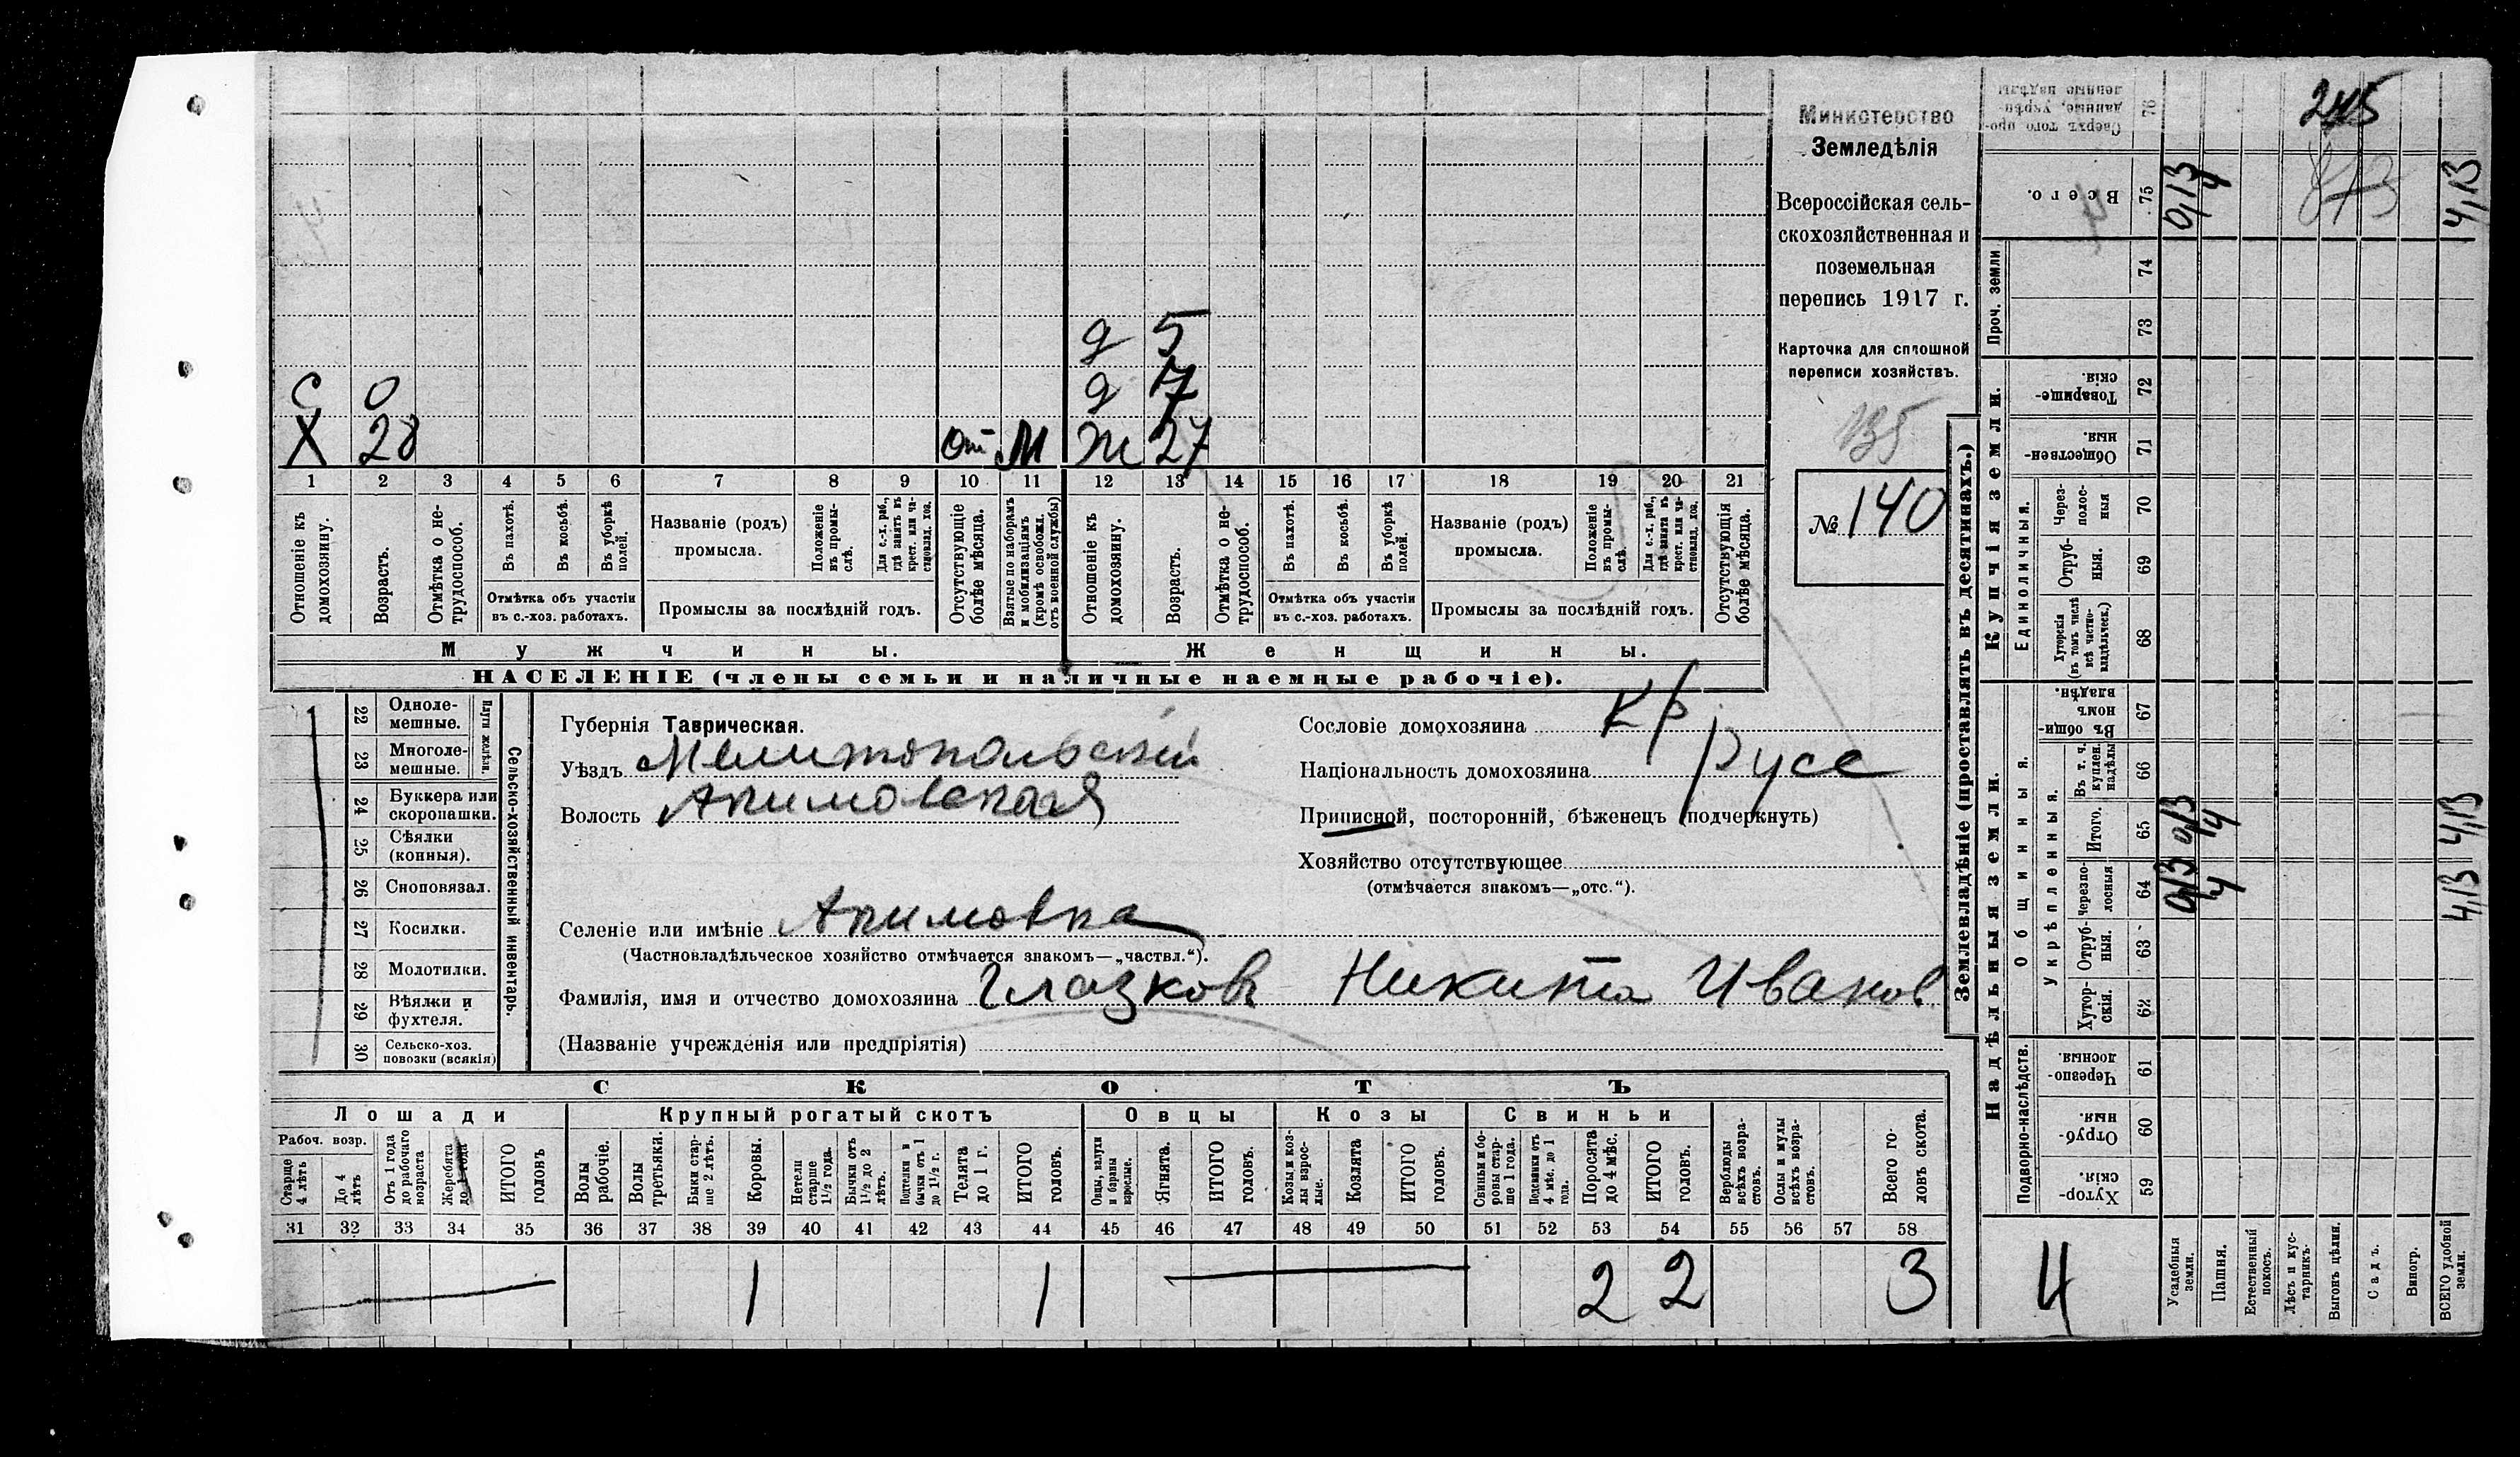 Министерство
Земледѣлія
Всероссійская сель-
скохозяйственная и
поземельная
перепись 1917 г.
Карточка для сплошной
переписи хозяйствъ.
135
№ 140
д 5
С 0 д 7
Х 28 от М Ж 27
1 2 3 4 5 6 7 8 9 10 11 12 13 14 15 16 17 18 19 20 21
Отношеніе къ домохозяину.
Возрастъ.
Отмѣтка о не-трудоспособ.
Въ пахотѣ.
Въ косьбѣ.
Въ уборкѣ полей.
Отмѣтка объ участіи
въ с.-хоз. работахъ.
Названіе (родъ)
промысла.
Положеніе въ промы-слѣ.
Для с.-х. раб., гдѣ занятъ въ крест. или ча-стновлад. хоз.
Промыслы за послѣдній годъ.
Отсутствующіе болѣе мѣсяца.
Взятые по наборамъ и мобилизаціямъ (кромѣ освобожд. отъ военной службы)
Отношеніе къ домохозяину.
Возрастъ.
Отмѣтка о не-трудоспособ.
Въ пахотѣ.
Въ косьбѣ.
Въ уборкѣ полей.
Отмѣтка объ участіи
въ с.-хоз. работахъ.
Названіе (родъ)
промысла.
Положеніе въ промы-слѣ.
Для с.-х. раб., гдѣ занята въ крест. или ча-стновлад. хоз.
Промыслы за послѣдній годъ.
Отсутствующія болѣе мѣсяца.
Мужчины.
Женщины.
НАСЕЛЕНІЕ (члены семьи и наличные наемные рабочіе).
22 Одноле-мешные.
23 Многоле-мешные.
Плуги желѣзн.
24 Буккера или скоропашки.
25 Сѣялки (конныя).
26 Сноповязал.
27 Косилки.
28 Молотилки.
29 Вѣялки и фухтеля.
30 Сельско-хоз. повозки (всякія)
Сельско-хозяйственный инвентарь.
Губернія Таврическая.
Уѣздъ Мелитопольскій
Волость Акимовская
Селеніе или имѣніе Акимовка
(Частновладѣльческое хозяйство отмѣчается знакомъ—„частвл.“).
Фамилія, имя и отчество домохозяина Глазковъ Никита Иванов
(Названіе учрежденія или предпріятія)
Сословіе домохозяина Кр
Національность домохозяина русс
Приписной, посторонній, бѣженецъ (подчеркнуть)
Хозяйство отсутствующее
(отмѣчается знакомъ—„отс.“).
СКОТЪ
Лошади
Крупный рогатый скотъ
Овцы
Козы
Свиньи
Рабоч. возр.
Старше 4 лѣтъ
До 4 лѣтъ
Отъ 1 года до рабочаго возраста
Жеребята до 1 года
ИТОГО головъ
Волы рабочіе.
Волы третьяки.
Быки стар-ше 2 лѣтъ.
Коровы.
Нетели старше 1½ года.
Бычки отъ 1½ до 2 лѣтъ.
Подтелки и бычки отъ 1 до 1½ г.
Телята до 1 г.
ИТОГО головъ.
Овцы, валухи и бараны взрослые.
Ягнята.
ИТОГО головъ.
Козы и коз-лы взрос-лые.
Козлята
ИТОГО головъ.
Свиньи и бо-ровы стар-ше 1 года.
Подсвинки отъ 4 мѣс. до 1 года.
Поросята до 4 мѣс.
ИТОГО головъ.
Верблюды всѣхъ возра-стовъ.
Ослы и мулы всѣхъ возра-стовъ.
Всего го-ловъ скота.
31 32 33 34 35 36 37 38 39 40 41 42 43 44 45 46 47 48 49 50 51 52 53 54 55 56 57 58
1 1 2 2 3
Землевладѣніе (проставлять въ десятинахъ.)
Сверхъ того про-данные, укрѣп-ленные надѣлы
76
245
Всего.
75
9,13
4
4,13
Проч. земли
74
73
Купчія земли.
Товарище-скія.
72
Обществен-ныя.
71
Единоличныя.
Через-полос-ныя
70
Отруб-ныя.
69
Хуторскія (въ томъ числѣ всѣ частно-владѣльческ.)
68
Надѣльныя земли.
Общинныя.
Въ общин-номъ владѣн.
67
Укрѣпленныя.
Въ т. ч. куплен. надѣлы
66
Итого.
65
4,13
Черезпо-лосныя
64
4,13
Отруб-ныя.
63
Хутор-скія.
62
Подворно-наслѣдств.
Черезпо-лосныя.
61
Отруб-ныя.
60
Хутор-скія.
59
4
Усадебныя земли.
Пашня.
Естественный покосъ.
Лѣсъ и кус-тарникъ.
Выгонъ цѣлин.
Садъ.
Виногр.
ВСЕГО удобной земли.